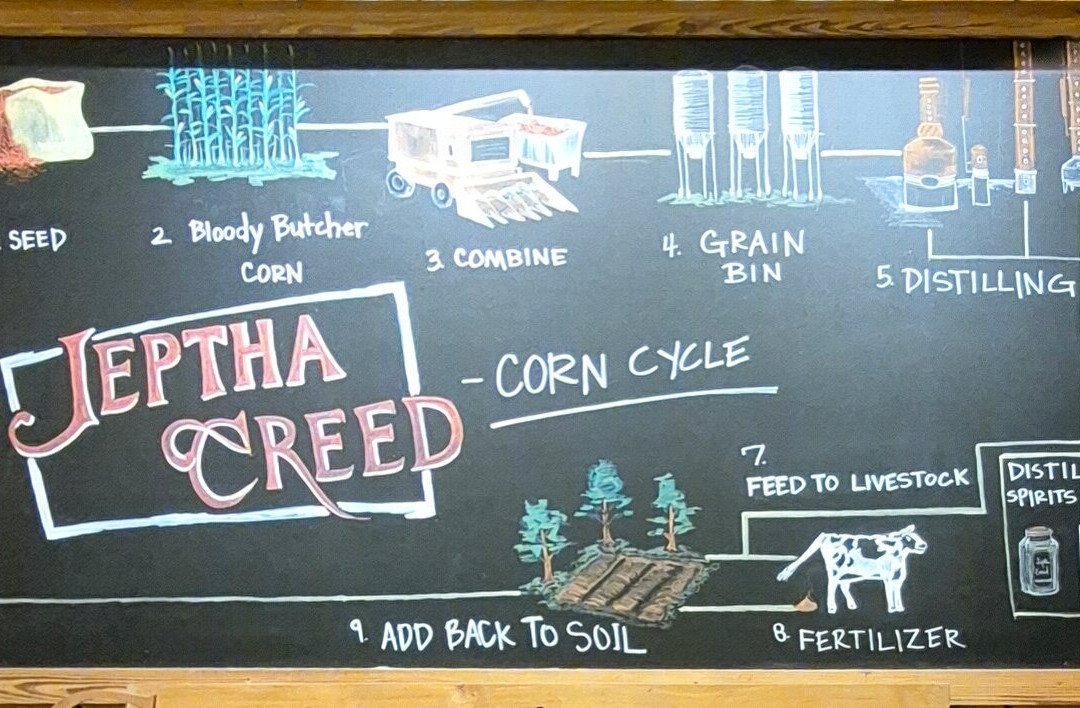 . SEED
2. Bloody Butcher
CORN
3. COMBINE
4. GRAIN
BIN
5. DISTILLING
JEPTHA
CREED
- CORN CYCLE
7.
FEED TO LIVESTOCK
DISTIL
SPIRITS
9. ADD BACK TO SOIL
8. FERTILIZER